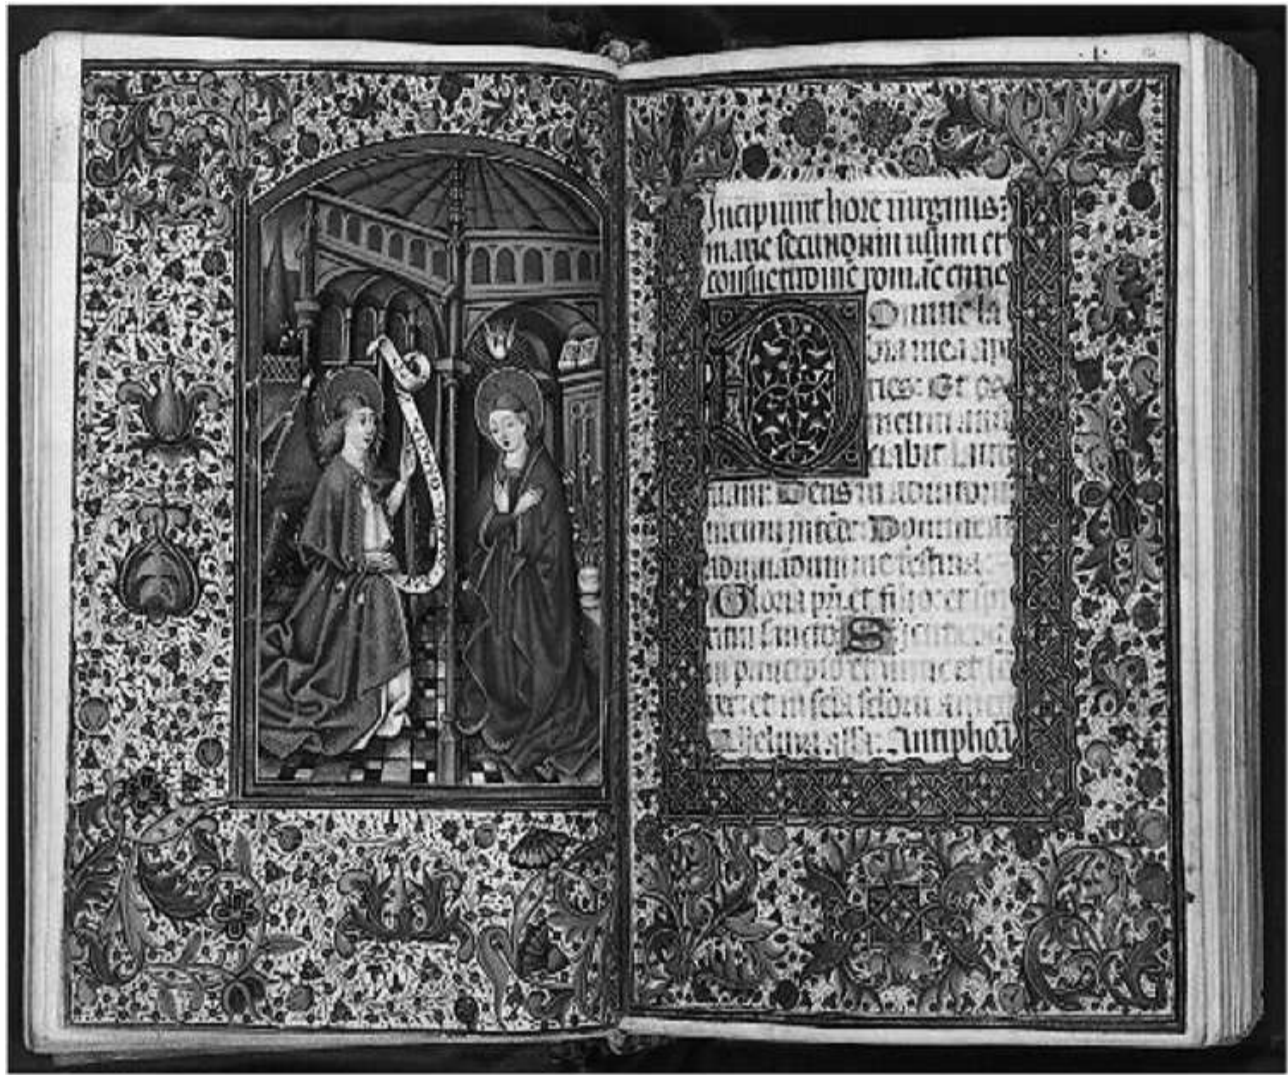 ·I·
Incipiunt hore virginis
marie secundum usum et
consuetudinē romāe curie
Domine la
bia mea ape
ries: Et os
meum
ciabit laudē
tuam: Deus in adiutoriū
meum intēde: Domine
ad iuuandum me festina
Gloria pr̄i et filio: et sp̄i
ritui sancto: Sicut erat
in principio et nunc et sē
per: et in scl̄a sclōrū amen
Alleluia. Antiphoā